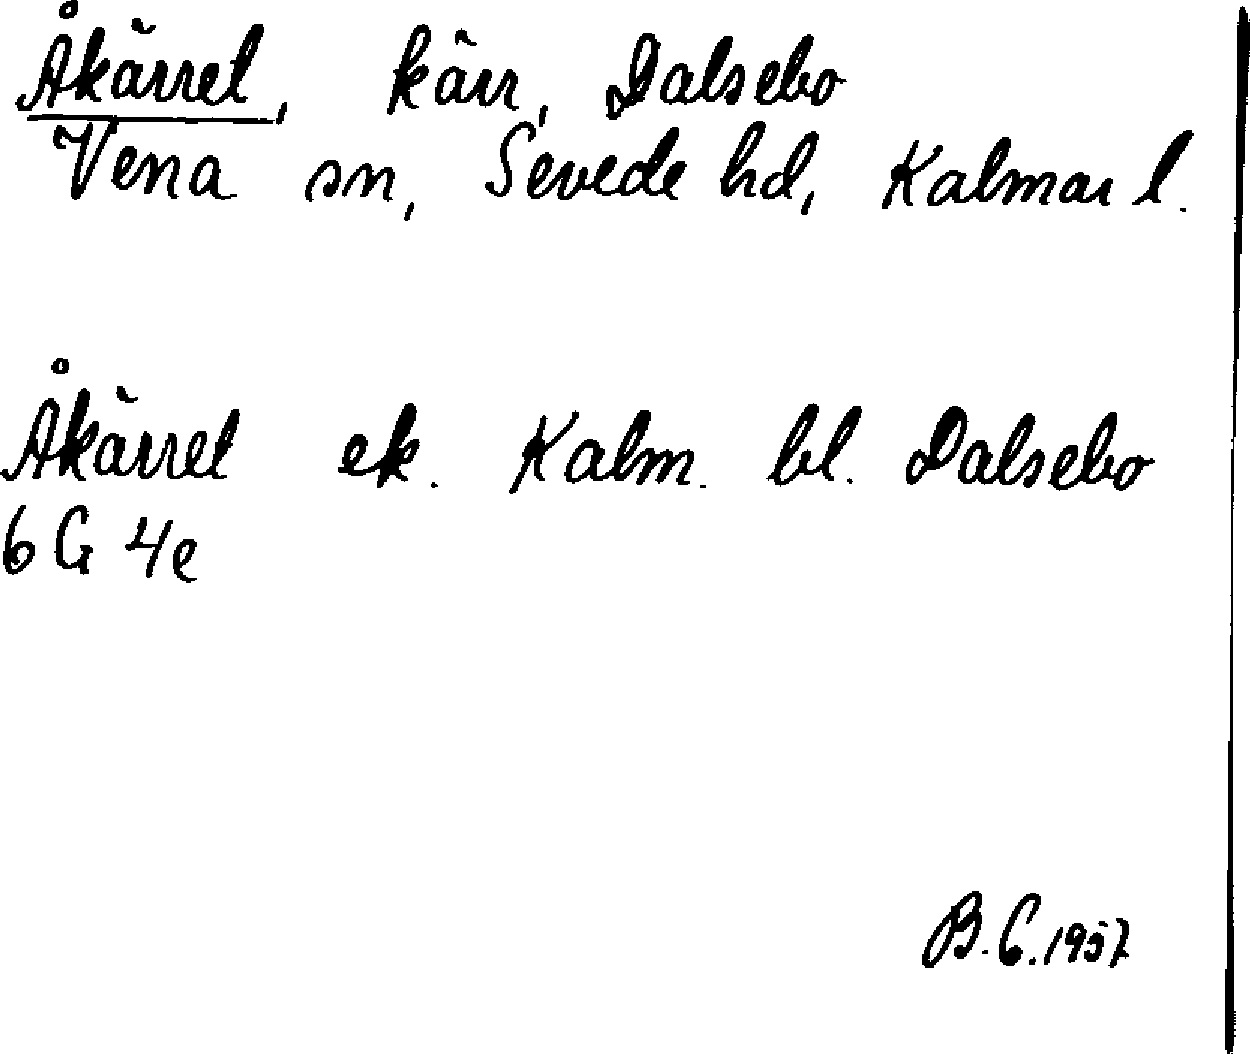 Åkärret, kärr, Dalsebo
Vena sn, Sevede hd, Kalmar l.
Åkärret ek. Kalm. bl. Dalsebo
6 G 4e
B.C. 1957